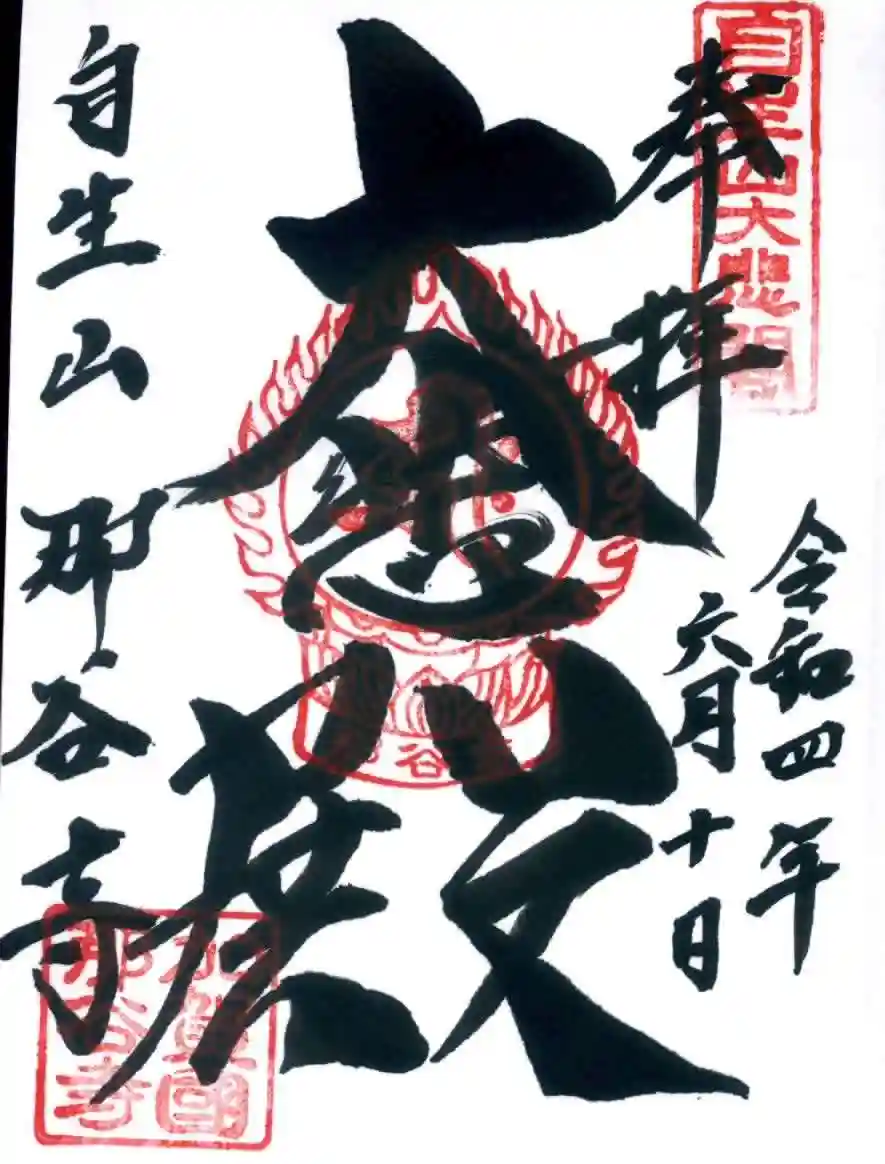 奉拝
自生山大悲閣
令和四年
六月十日
大悲殿
自生山 那谷寺
加賀國
那谷寺